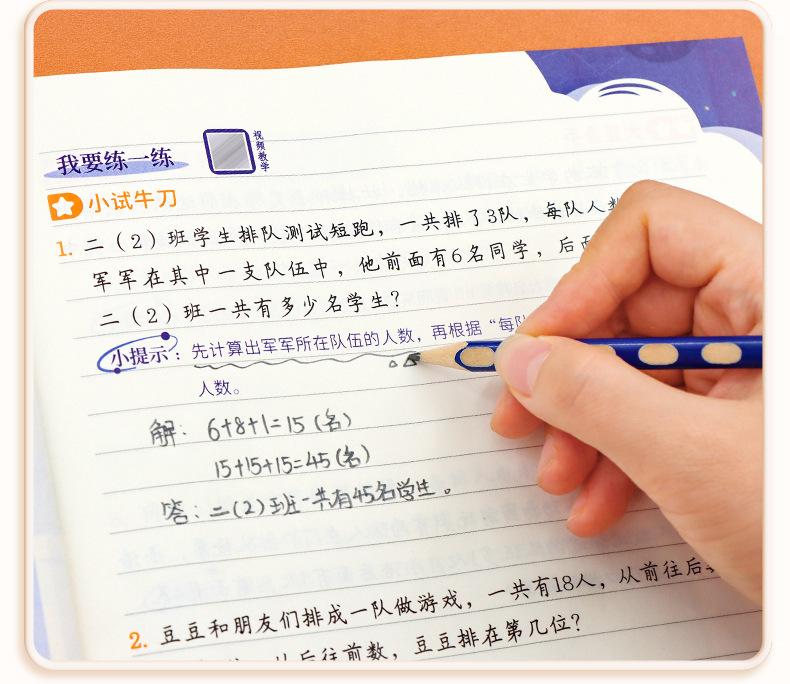 我要练一练
视频教学
小试牛刀
1. 二（2）班学生排队测试短跑，一共排了3队，每队人数
军军在其中一支队伍中，他前面有6名同学，后面
二（2）班一共有多少名学生？
小提示：先计算出军军所在队伍的人数，再根据“每队
人数。
解：6+8+1=15（名）
15+15+15=45（名）
答：二（2）班一共有45名学生。
2. 豆豆和朋友们排成一队做游戏，一共有18人，从前往后
从后往前数，豆豆排在第几位？